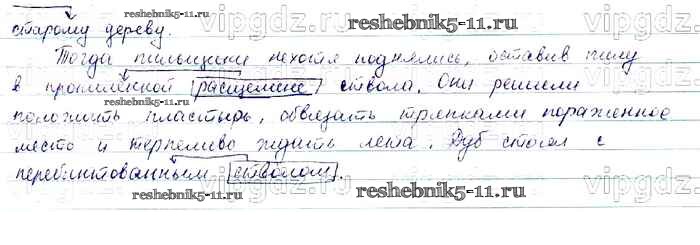 старому дереву. reshebnik5-11.ru
Тогда пильщики нехотя поднялись, оставив пилу
в пропиленной расщелине ствола. Они решили
reshebnik5-11.ru
положить пластырь, обвязать тряпками пораженное
место и терпеливо ждать лета. Дуб стоял с
перебинтованным стволом.
reshebnik5-11.ru reshebnik5-11.ru
vipgdz.ru vipgdz.ru
vipgdz.ru vipgdz.ru
vipgdz.ru vipgdz.ru